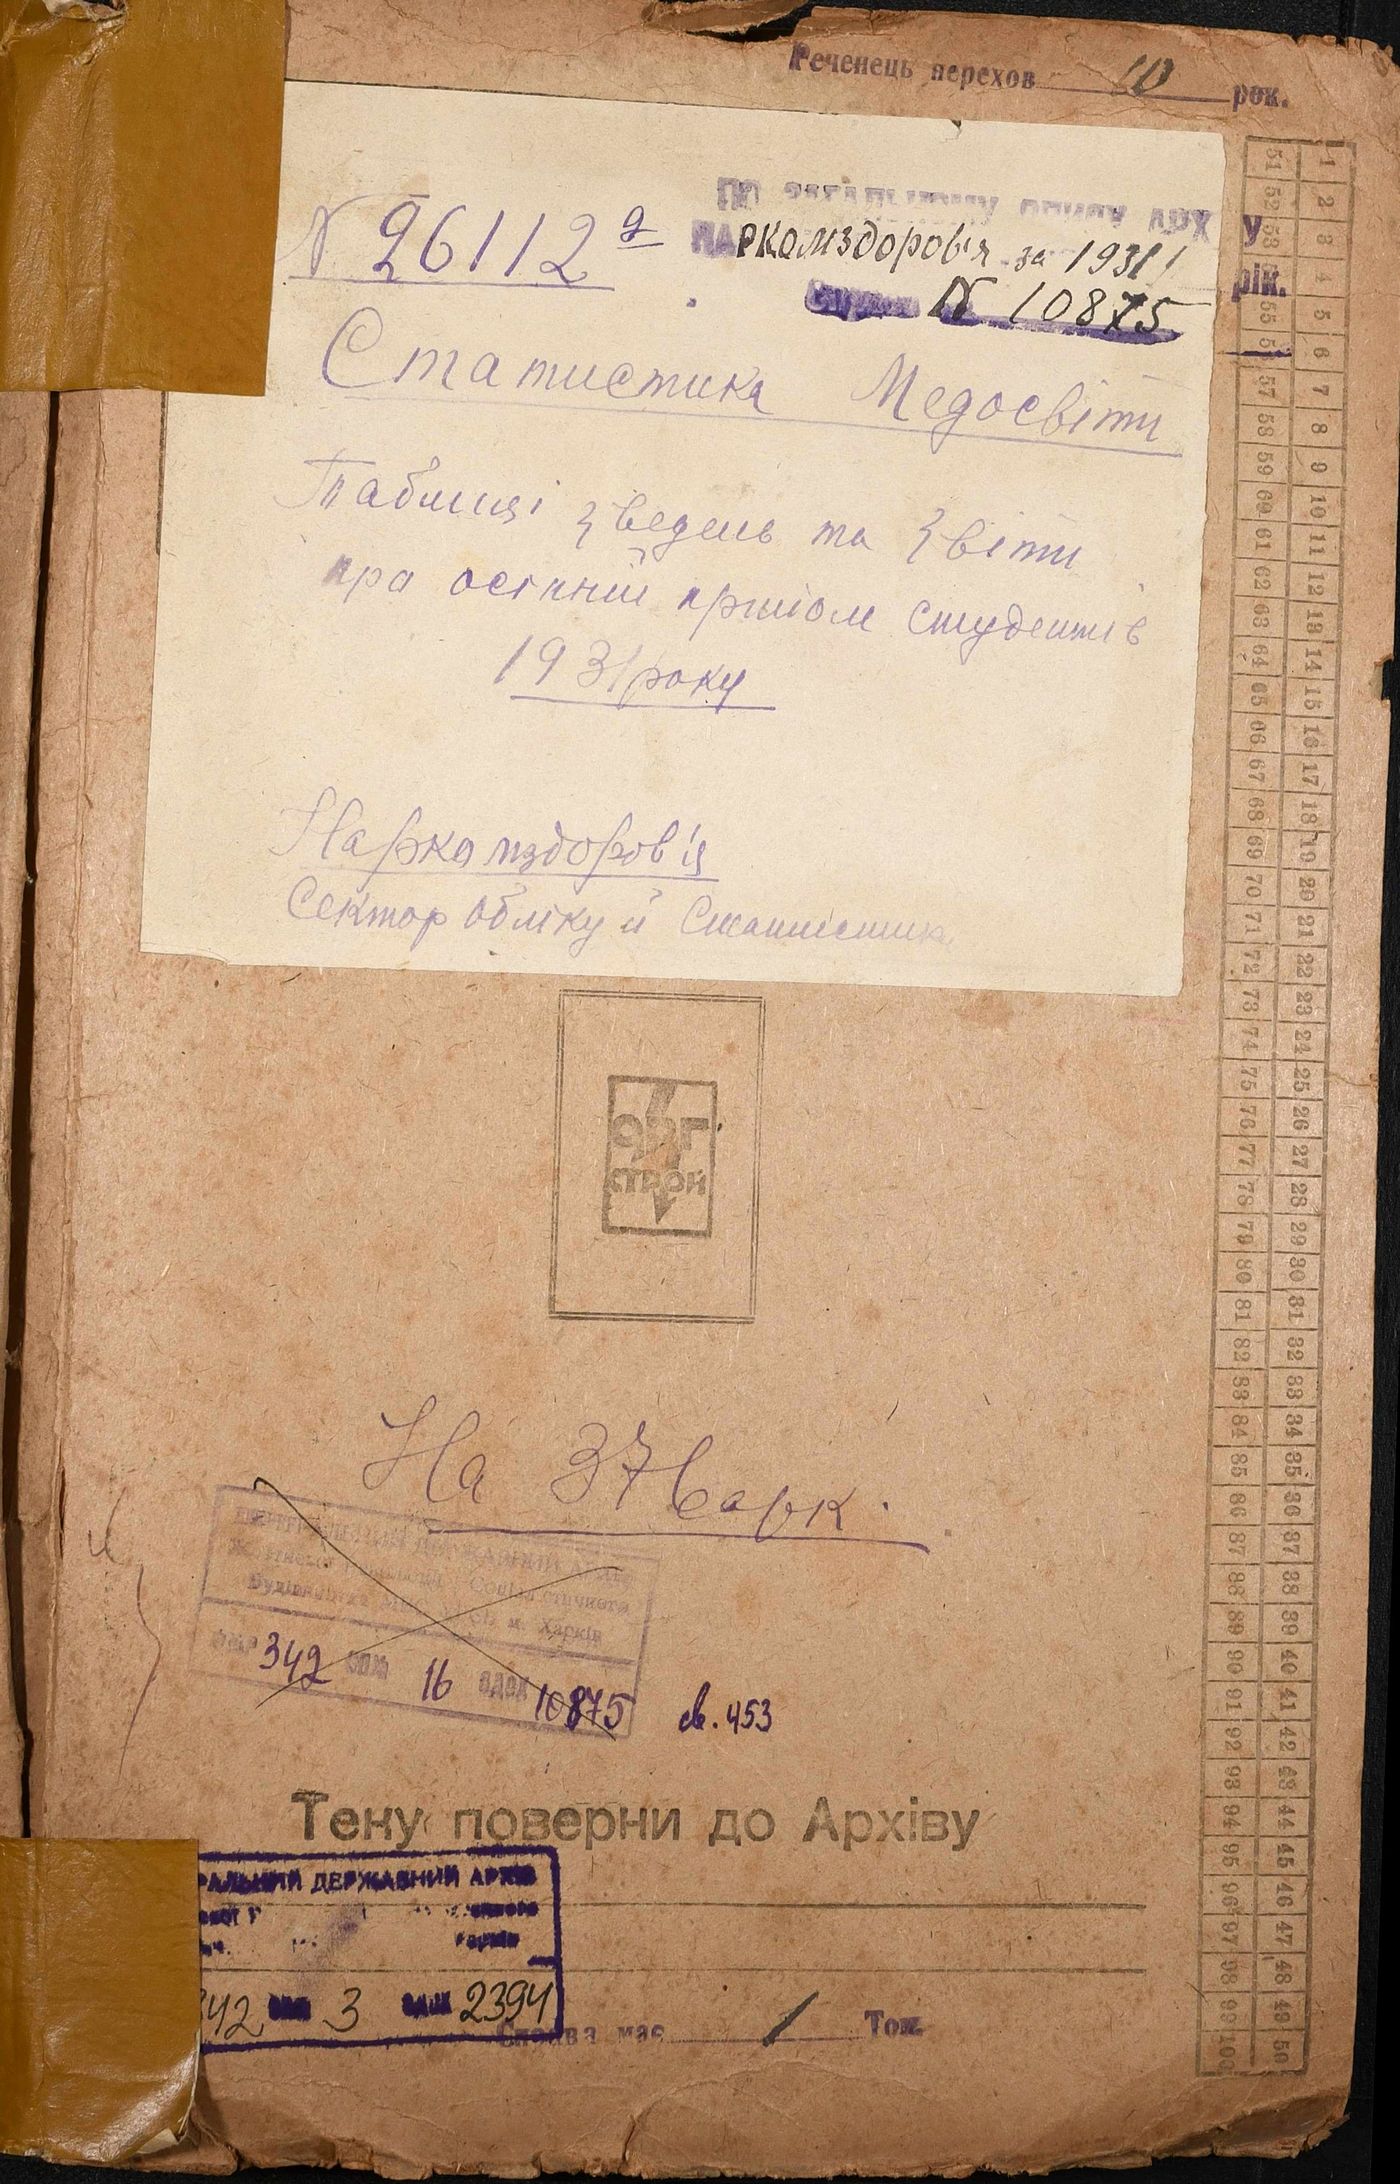 Реченець перехов 10 рок.
ПО ЗАГАЛЬНОМУ ОПИСУ АРХ У
N 26112 НАркомздоров'я за 1931 рік.
N 10875
Статистика Медосвіти
Таблиці зведень та звіти
про осінній прийом студентів
1931 року
Наркомздоров'я
Сектор обліку й Статистики
ОРГ
СТРОЙ
На 37 барк.
ЦЕНТРАЛЬНИЙ ДЕРЖАВНИЙ АРХІВ
Жовтневої революції і Соціалістичного
Будівництва м. Харків
342 16 10875 св. 453
Тену поверни до Архіву
РАЛЬНИЙ ДЕРЖАВНИЙ АРХІВ
Харків
342 3 2394
Справа має 1 Том.
1 2 3 4 5 6 7 8 9 10 11 12 13 14 15 16 17 18 19 20 21 22 23 24 25 26 27 28 29 30 31 32 33 34 35 36 37 38 39 40 41 42 43 44 45 46 47 48 49 50
51 52 53 55 57 58 59 60 61 62 63 64 65 66 67 68 69 70 71 72 73 74 75 76 77 78 79 80 81 82 83 84 85 86 87 88 89 90 91 92 93 94 95 96 97 98 99 100